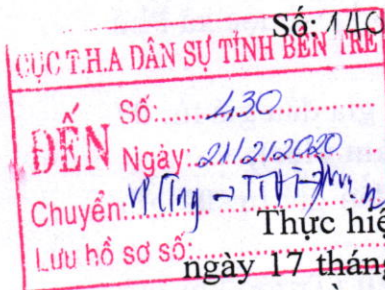 Số: 140
CỤC T.H.A DÂN SỰ TỈNH BẾN TRE
ĐẾN
Số: 430
Ngày: 21/2/2020
Chuyển:
Lưu hồ sơ số:
Thực hiệ
ngày 17 tháng